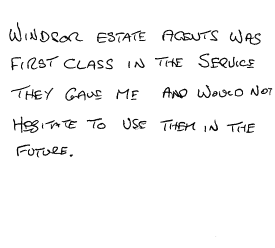 WINDSOR ESTATE AGENTS WAS
FIRST CLASS IN THE SERVICE
THEY GAVE ME AND WOULD NOT
HESITATE TO USE THEM IN THE
FUTURE.